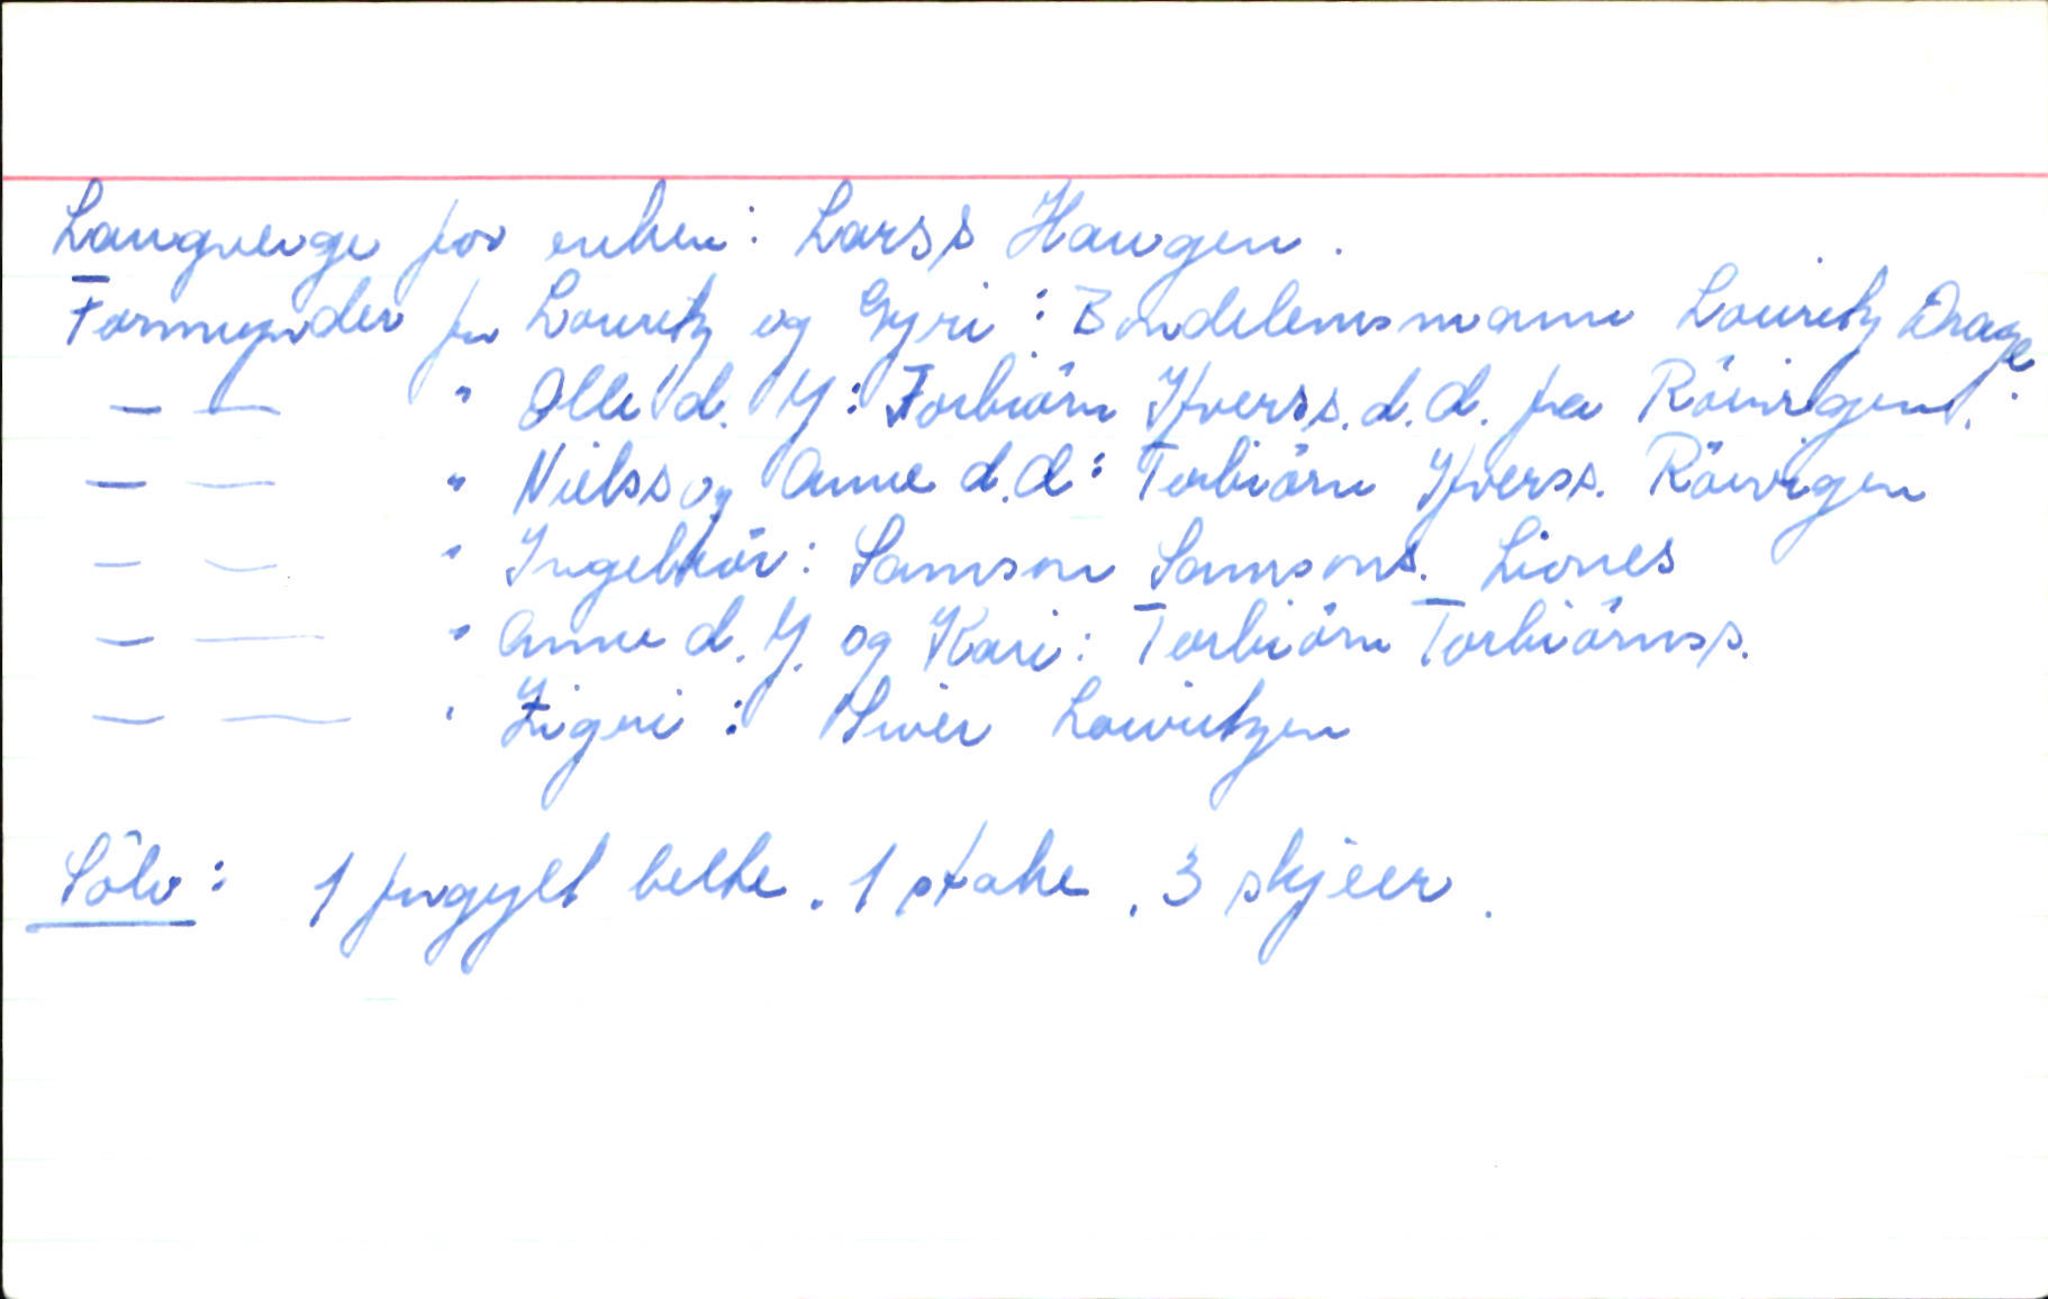 Laugverge for enken: Larss Haugen.
Formynder for Louritz og Gyri: Bondelensmann Louritz Drage.
— — " Olle d. Y: Torbiörn Ifverss. d.d. fra Röivigen.
— — " Nielss og Anne d.d: Torbiörn Ifverss. Röivigen
— — " Ingebör: Samson Samsons. Liones
— — " Anne d. Y. og Kari: Torbiörn Torbiörnss.
— — " Zigri: Siver Louritzen
Sölv: 1 forgylt belte. 1 stake. 3 skjeer.